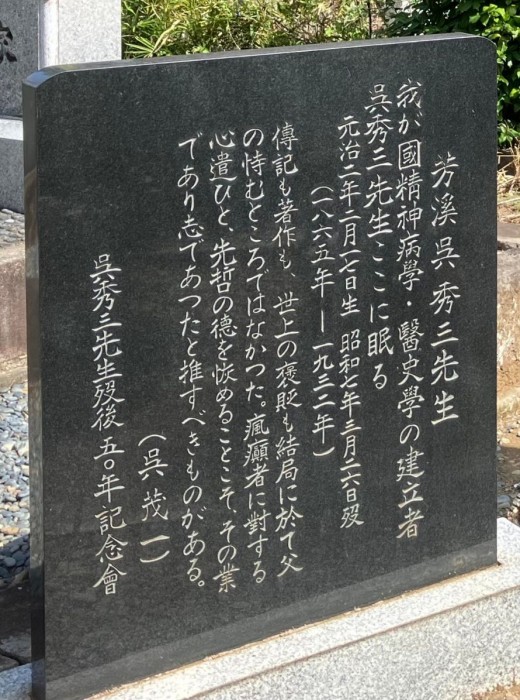 芳溪 呉秀三先生
我が國精神病學・醫史學の建立者
呉秀三先生ここに眠る
元治二年二月一七日生 昭和七年三月二六日歿
(一八六五年―一九三二年)
傳記も著作も、世上の褒貶も結局に於て父
の恃むところではなかつた。瘋癲者に對する
心遣ひと、先哲の徳を恢めることこそ、その業
であり志であつたと推すべきものがある。
(呉茂一)
呉秀三先生歿後五〇年記念會
家